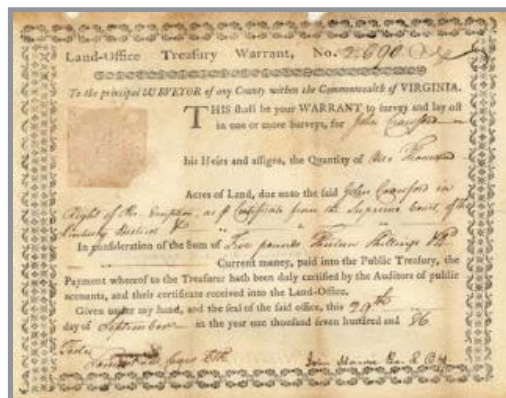 Land-Office Treasury Warrant, No. 2,690
To the principal SURVEYOR of any County within the Commonwealth of VIRGINIA.
THIS shall be your WARRANT to survey and lay off
in one or more Surveys, for John Crawford
his Heirs and assigns, the Quantity of One Thousand
Acres of Land, due unto the said John Crawford in
Right of Pre Emption, as Certificate from the Supreme Court, of the
Kentucky District
In consideration of the Sum of Five pounds Thirteen Shillings
Current money, paid into the Public Treasury, the
Payment whereof to the Treasurer hath been duly certified by the Auditors of public
accounts, and their certificate received into the Land-Office.
Given under my hand, and the seal of the said office, this 29th
day of September in the year one thousand seven hundred and 86